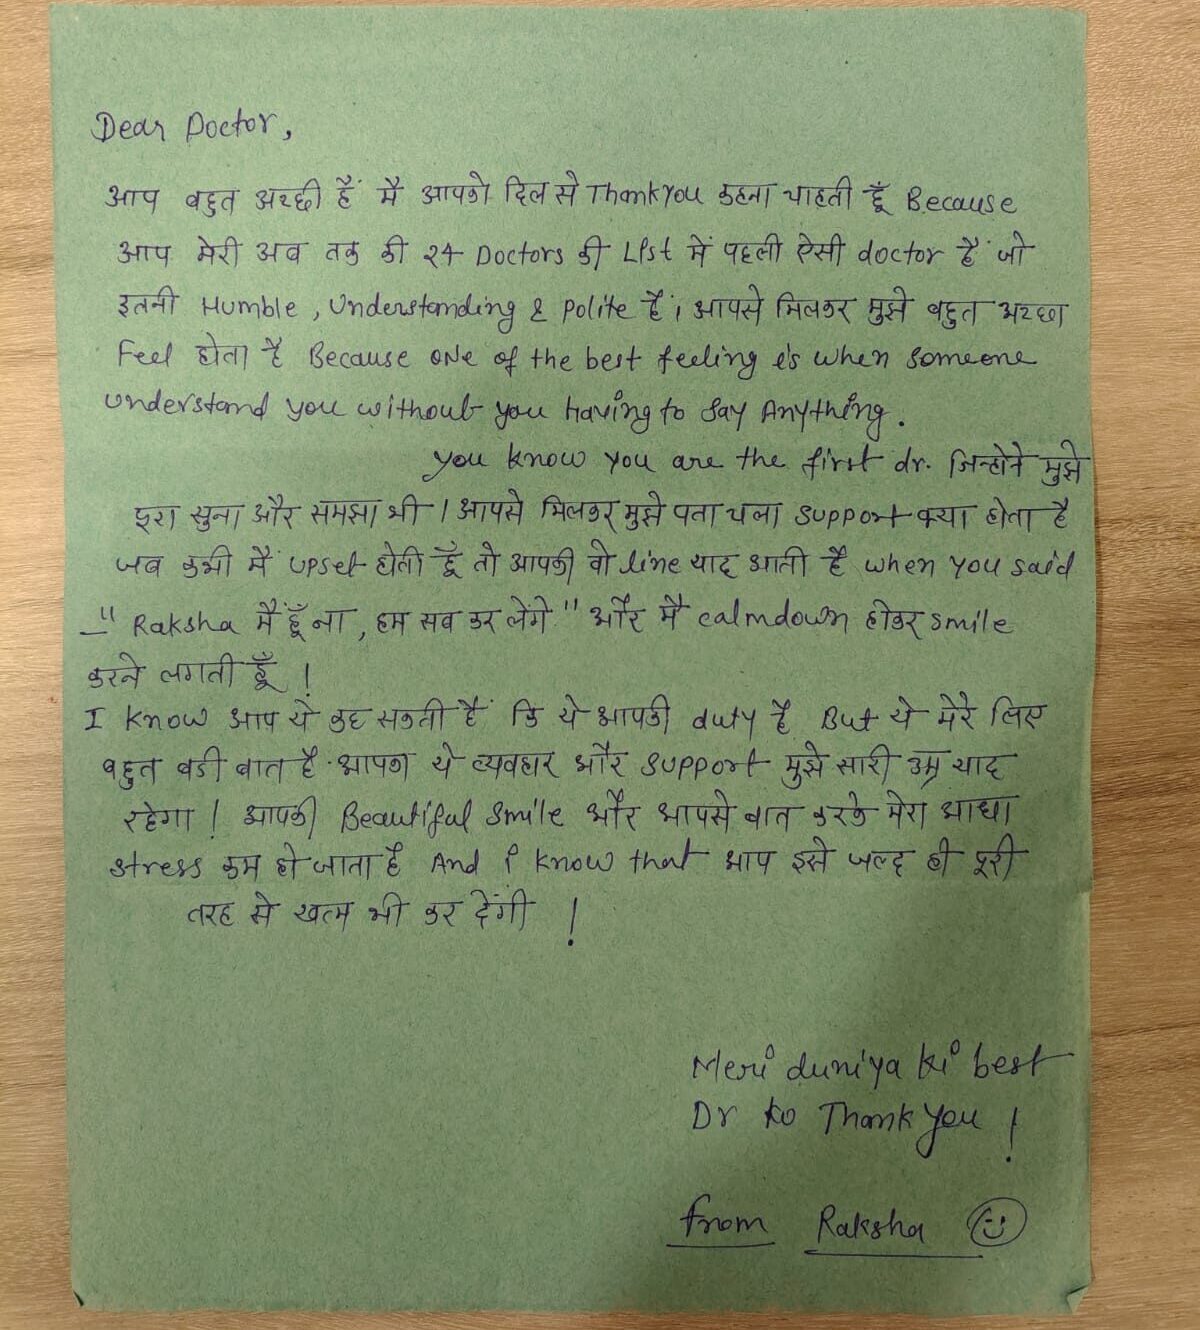 Dear Doctor,
आप बहुत अच्छी हैं मै आपको दिल से Thank You कहना चाहती हूँ Because
आप मेरी अब तक की 24 Doctors की List में पहली ऐसी doctor हैं जो
इतनी Humble, Understanding & Polite हैं। आपसे मिलकर मुझे बहुत अच्छा
Feel होता है Because one of the best feeling is when someone
understand you without you having to say Anything.
you know you are the first dr. जिन्होने मुझे
पूरा सुना और समझा भी। आपसे मिलकर मुझे पता चला support क्या होता है
जब कभी मैं upset होती हूँ तो आपकी वो line याद आती है when you said
- "Raksha मैं हूँ ना, हम सब कर लेंगे" और मै calmdown होकर smile
करने लगती हूँ !
I know आप ये कह सकती हैं कि ये आपकी duty है But ये मेरे लिए
बहुत बडी बात है. आपका ये व्यवहार और support मुझे सारी उम्र याद
रहेगा ! आपकी Beautiful smile और आपसे बात करके मेरा आधा
stress कम हो जाता है And i know that आप इसे जल्द ही पूरी
तरह से खत्म भी कर देंगी !
Meri duniya ki best
Dr ko Thank you !
from Raksha ☺